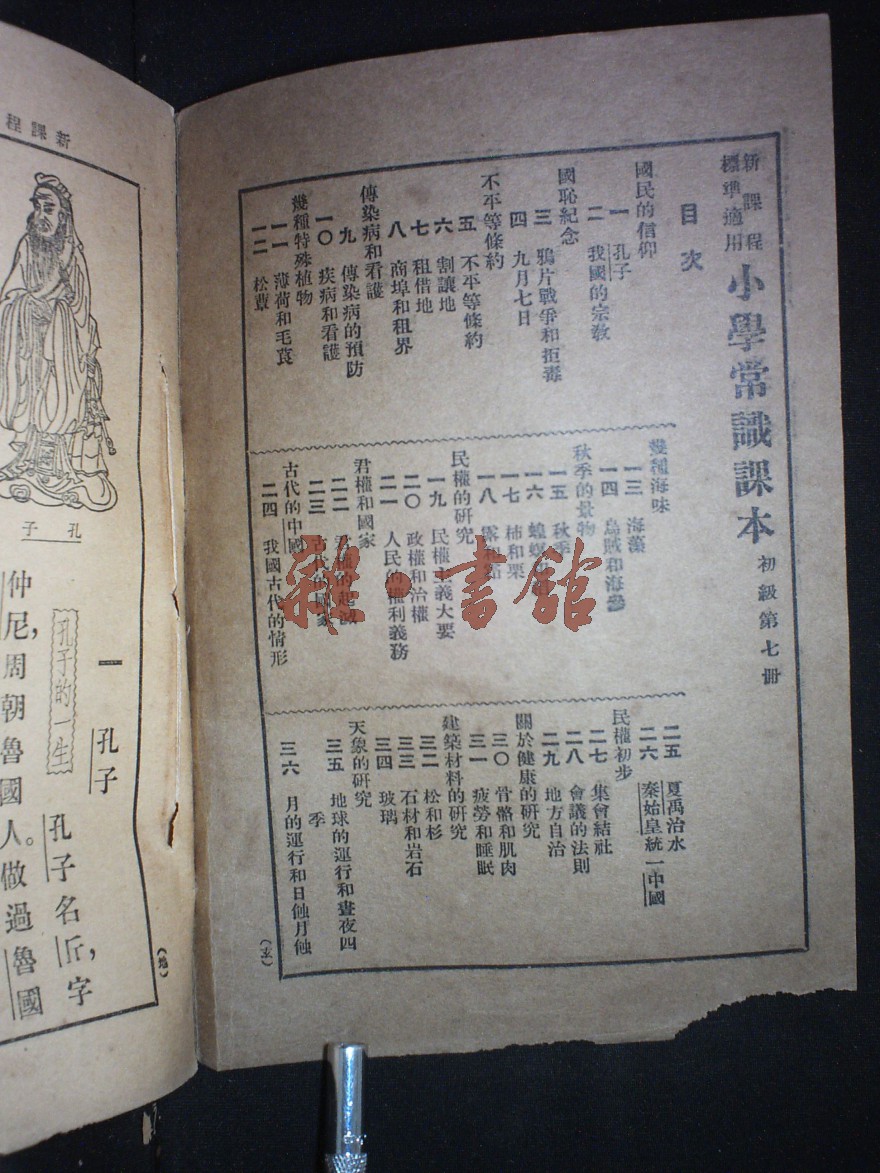 新課程
標準適用
小學常識課本
初級第七冊
目次
國民的信仰
一 孔子
二 我國的宗教
國恥紀念
三 鴉片戰爭和拒毒
四 九月七日
不平等條約
五 不平等條約
六 割讓地
七 租借地
八 商埠和租界
傳染病和看護
九 傳染病的預防
一〇 疾病和看護
幾種特殊植物
一一 薄荷和毛茛
一二 松蕈
幾種海味
一三 海藻
一四 烏賊和海參
秋季的景物
一五 秋季
一六 蝗螟
一七 柿和栗
一八 霧和霜
民權的研究
一九 民權主義大要
二〇 政權和治權
二一 人民的權利義務
君權和國家
二二 君權的起滅
二三 古代的國家
古代的中國
二四 我國古代的情形
二五 夏禹治水
二六 秦始皇統一中國
民權初步
二七 集會結社
二八 會議的法則
二九 地方自治
關於健康的研究
三〇 骨骼和肌肉
三一 疲勞和睡眠
建築材料的研究
三二 松和杉
三三 石材和岩石
三四 玻璃
天象的研究
三五 地球的運行和晝夜四
季
三六 月的運行和日蝕月蝕
(玄)
雜書館
新課程
孔子
一 孔子
孔子的一生
孔子名丘，字
仲尼，周朝魯國人。做過魯國
(地)